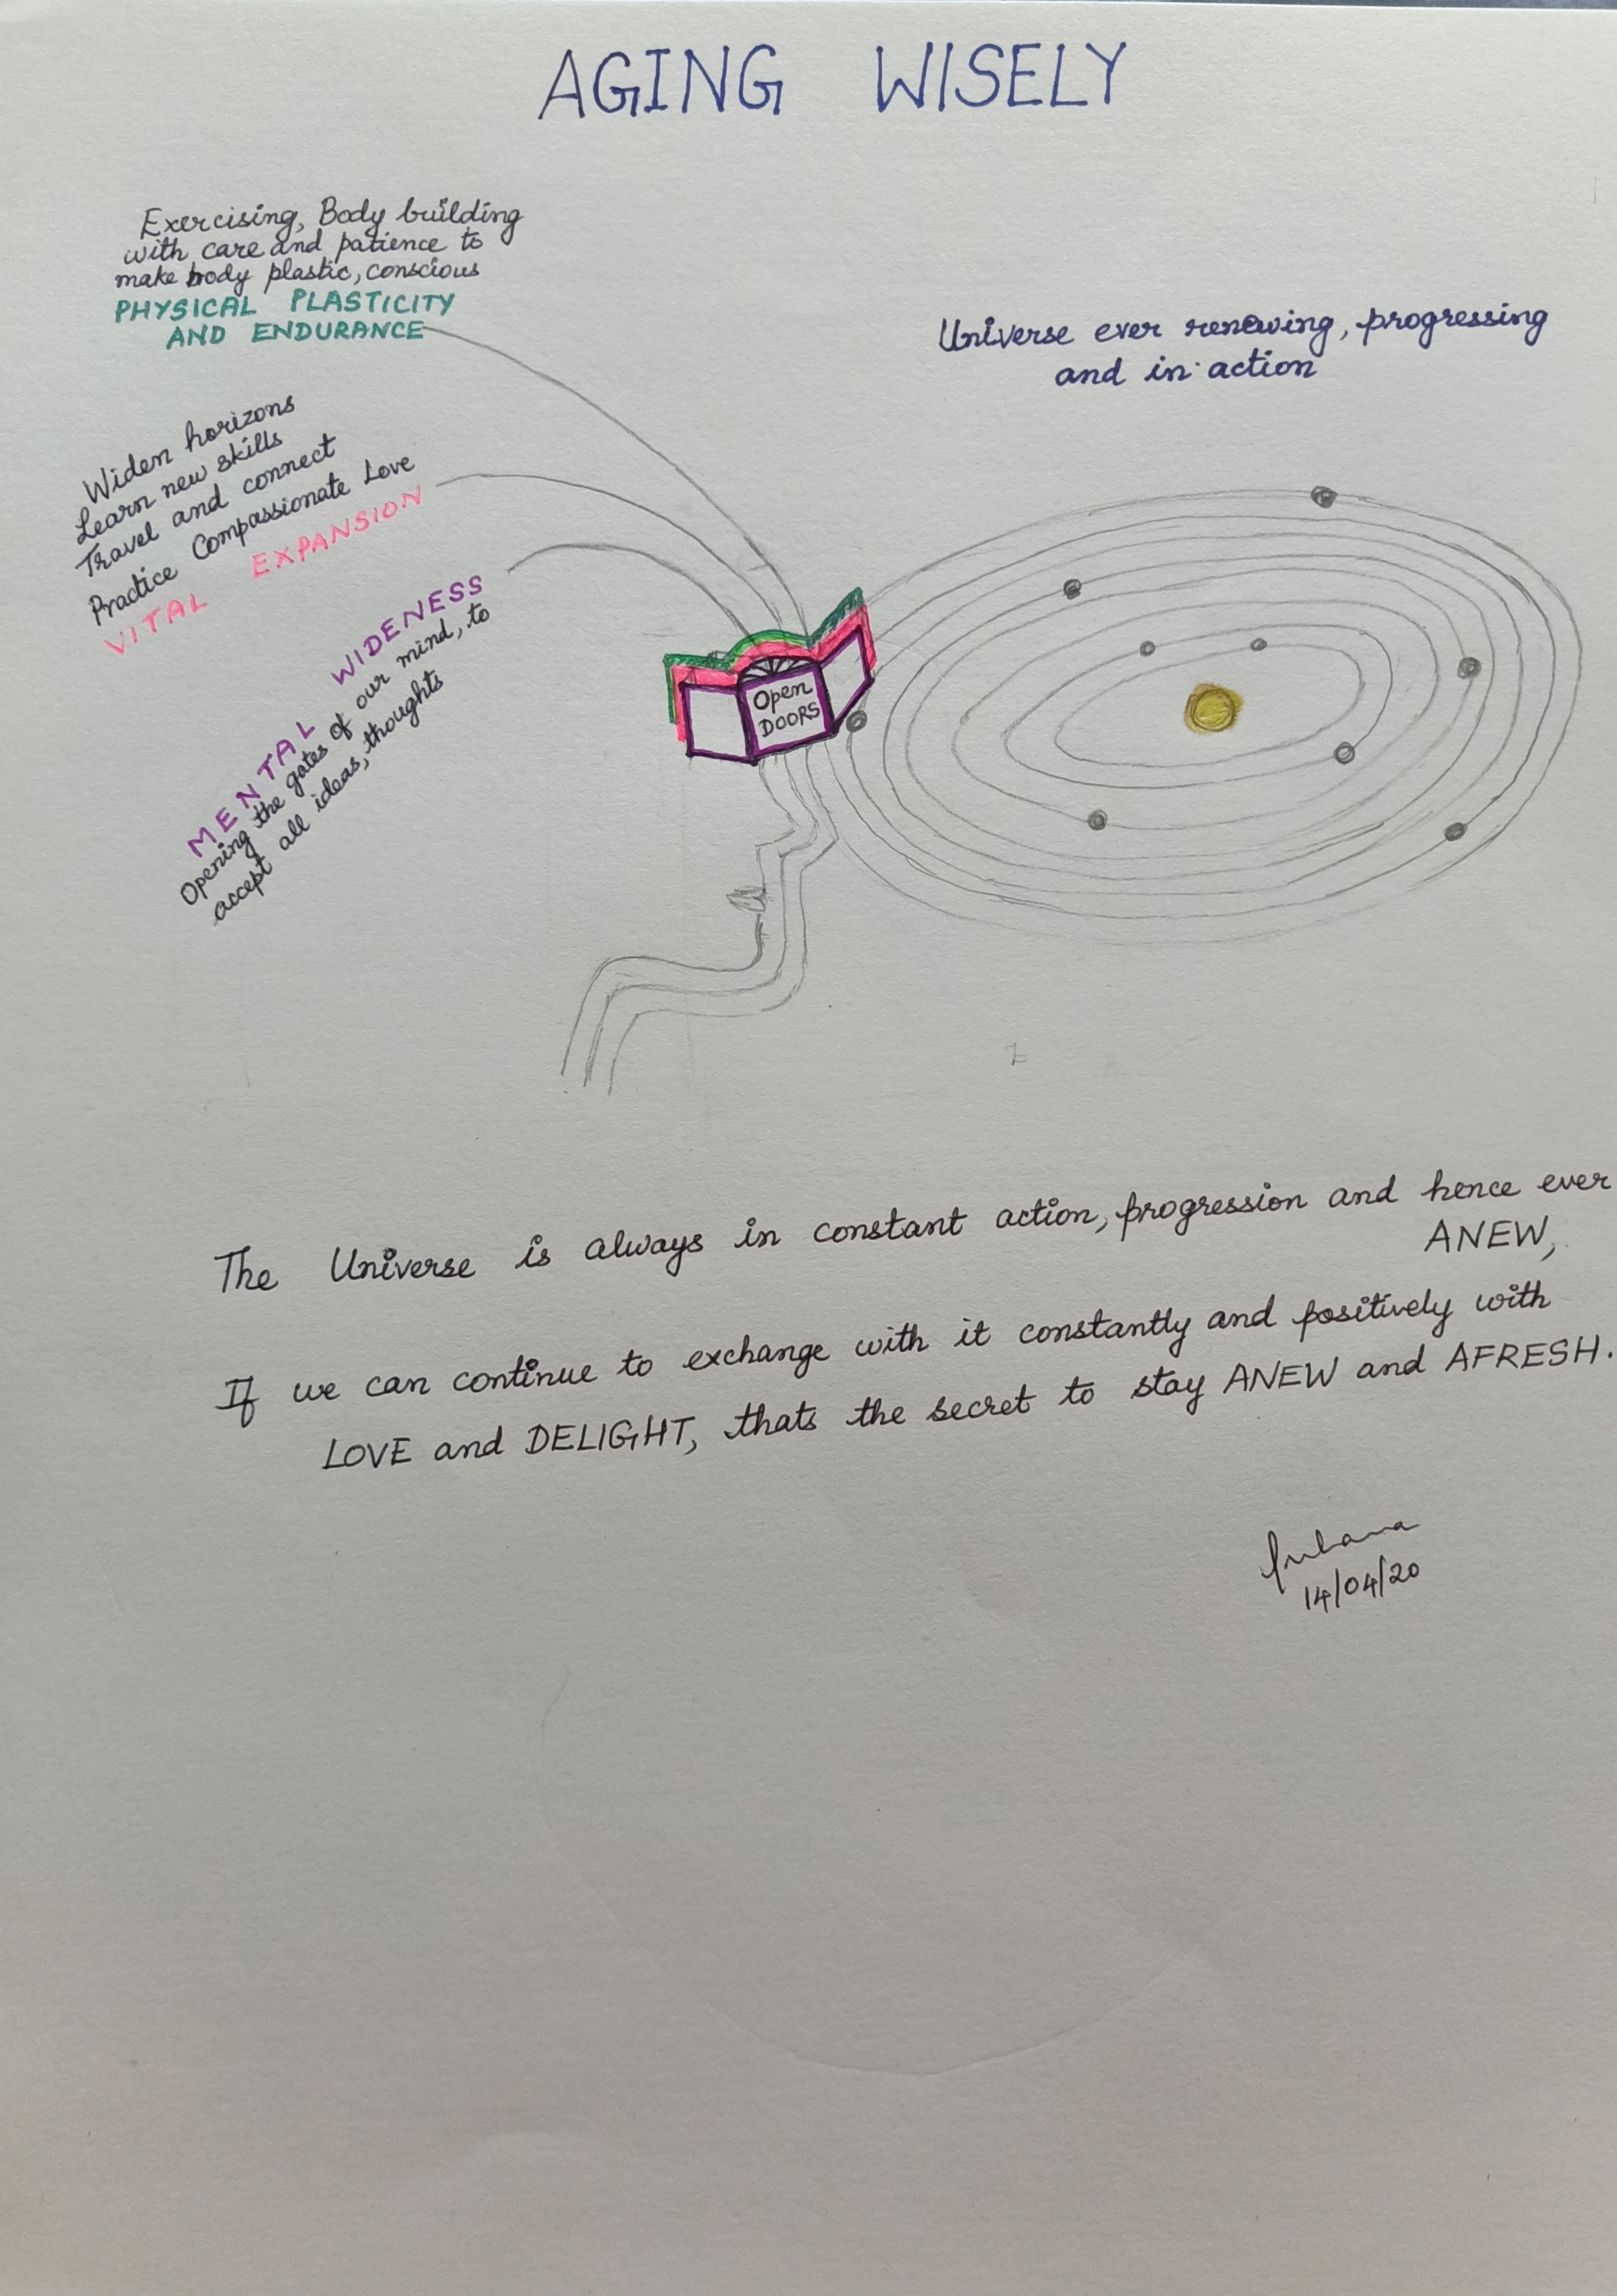 AGING WISELY
Exercising, Body building
with care and patience to
make body plastic, conscious
PHYSICAL PLASTICITY
AND ENDURANCE
Universe ever renewing, progressing
and in action
Widen horizons
Learn new skills
Travel and connect
Practice Compassionate Love
VITAL EXPANSION
MENTAL WIDENESS
Opening the gates of our mind, to
accept all ideas, thoughts
Open
DOORS
The Universe is always in constant action, progression and hence ever
ANEW,
If we can continue to exchange with it constantly and positively with
LOVE and DELIGHT, thats the secret to stay ANEW and AFRESH.
14/04/20